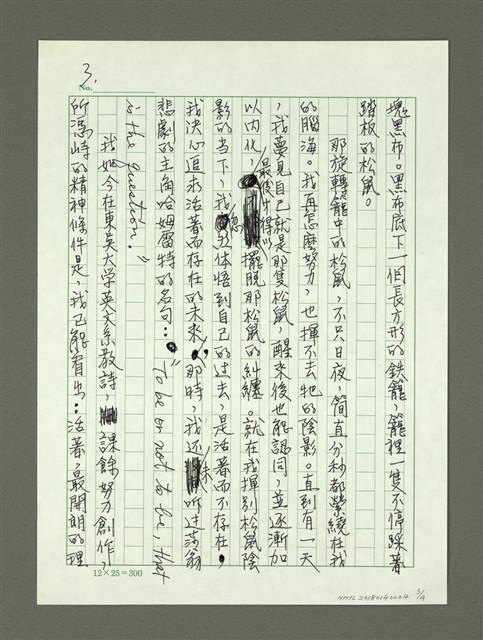 3.
No.
塊黑布。黑布底下一個長方形的鉄籠，籠裡一隻不停踩著
踏板的松鼠。
那旋轉籠中的松鼠，不只日夜，簡直分秒都縈繞在我
的腦海。我再怎麼努力，也揮不去牠的陰影。直到有一天
，我夢見自己就是那隻松鼠，醒來後也能認同，並逐漸加
以內化，最後才得以擺脫那松鼠的糾纏。就在我揮別松鼠陰
影的當下，我恍悟到自己的过去，是活著而不存在，
我決心追求活著而存在的未來，那時，我还未听过莎翁
悲劇的主角哈姆雷特的名句："To be or not to be, that
is the question."
我如今在東吳大学英文系教詩，課餘努力創作，
所憑恃的精神條件是，我已能看出：活著，最開朗的理
12×25=300
NMTL20180140224 3/4